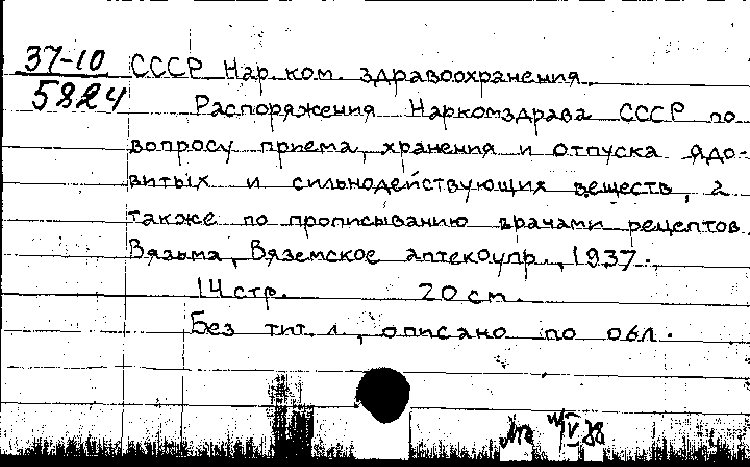 37-10 СССР Нар. ком. здравоохранения.
5824 Распоряжения Наркомздрава СССР по
вопросу приема, хранения и отпуска ядо-
витых и сильнодействующих веществ, а
также по прописыванию врачами рецептов.
Вязьма, Вяземское аптекоупр., 1937.
14 стр. 20 см.
Без тит. л., описано по обл.
IV 38